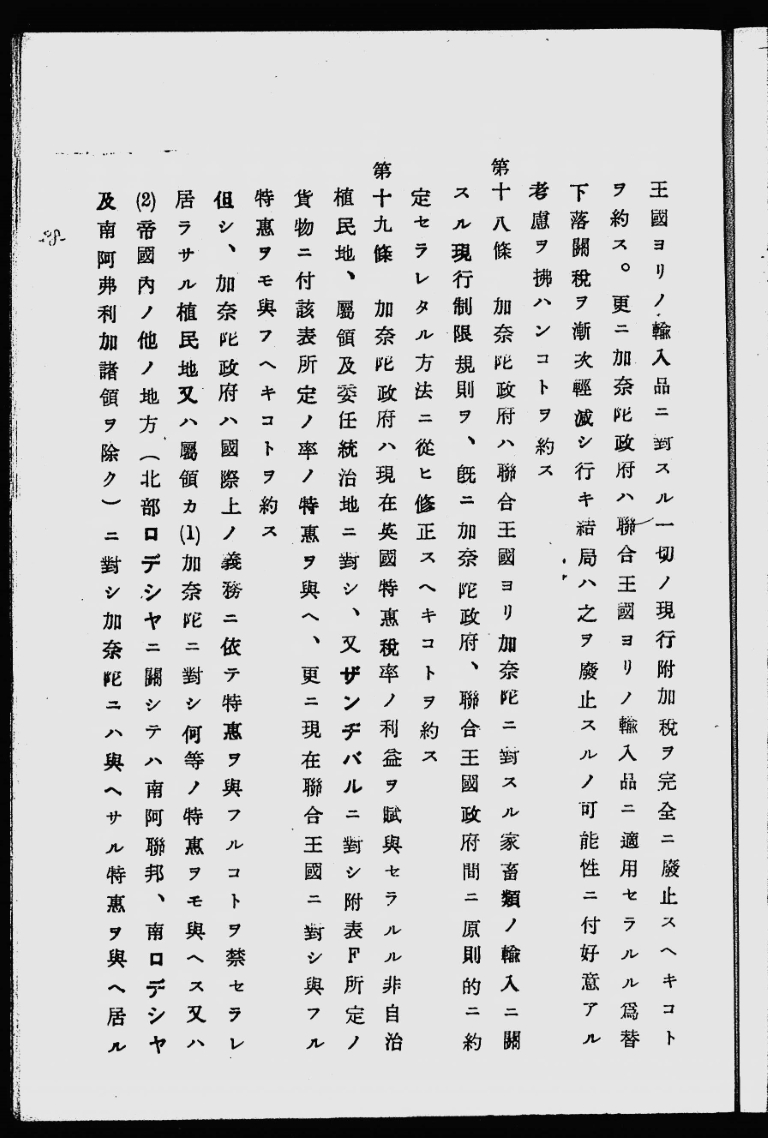 王國ヨリノ輸入品ニ對スル一切ノ現行附加稅ヲ完全ニ廢止スヘキコト
ヲ約ス。更ニ加奈陀政府ハ聯合王國ヨリノ輸入品ニ適用セラルル爲替
下落關稅ヲ漸次輕減シ行キ結局ハ之ヲ廢止スルノ可能性ニ付好意アル
考慮ヲ拂ハンコトヲ約ス
第十八條 加奈陀政府ハ聯合王國ヨリ加奈陀ニ對スル家畜類ノ輸入ニ關
スル現行制限規則ヲ、旣ニ加奈陀政府、聯合王國政府間ニ原則的ニ約
定セラレタル方法ニ從ヒ修正スヘキコトヲ約ス
第十九條 加奈陀政府ハ現在英國特惠稅率ノ利益ヲ賦與セラルル非自治
植民地、屬領及委任統治地ニ對シ、又ザンヂバルニ對シ附表F所定ノ
貨物ニ付該表所定ノ率ノ特惠ヲ與ヘ、更ニ現在聯合王國ニ對シ與フル
特惠ヲモ與フヘキコトヲ約ス
但シ、加奈陀政府ハ國際上ノ義務ニ依テ特惠ヲ與フルコトヲ禁セラレ
居ラサル植民地又ハ屬領カ(1)加奈陀ニ對シ何等ノ特惠ヲモ與ヘス又ハ
(2)帝國內ノ他ノ地方(北部ロデシヤニ關シテハ南阿聯邦、南ロデシヤ
及南阿弗利加諸領ヲ除ク)ニ對シ加奈陀ニハ與ヘサル特惠ヲ與ヘ居ル